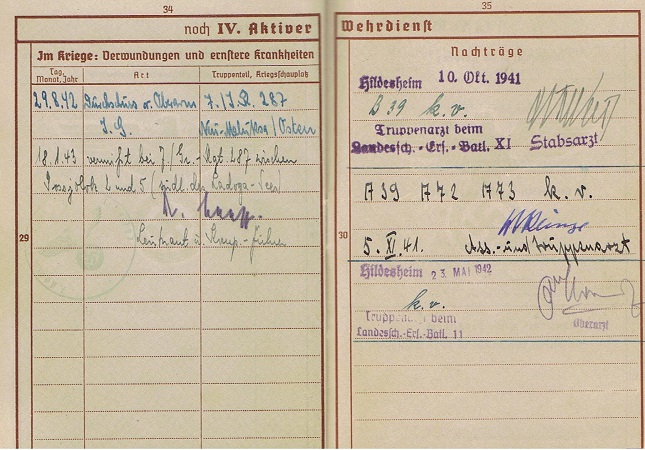 34
noch IV. Aktiver
Im Kriege: Verwundungen und ernstere Krankheiten
Tag, Monat, Jahr
Art
Truppenteil, Kriegsschauplatz
29.8.42 Durchschuss r. Oberarm 7./I.R. 287
I.G.
18.1.43 vermißt bei 7./Gr. Rgt. 287 zwischen
Possjolok 2 und 5 (südl. des Ladoga-Sees)
Leutnant u. Komp.-Führer
29
35
Wehrdienst
Nachträge
Hildesheim 10. Okt. 1941
B 39 k.v.
Truppenarzt beim
Landessch.-Ers.-Batl. XI Stabsarzt
A 39 A 72 A 73 k.v.
30
5. XI. 41. Ass.- und Truppenarzt
Hildesheim 23. MAI 1942
k.v.
Truppenarzt beim
Landessch.-Ers.-Batl. 11
Oberarzt